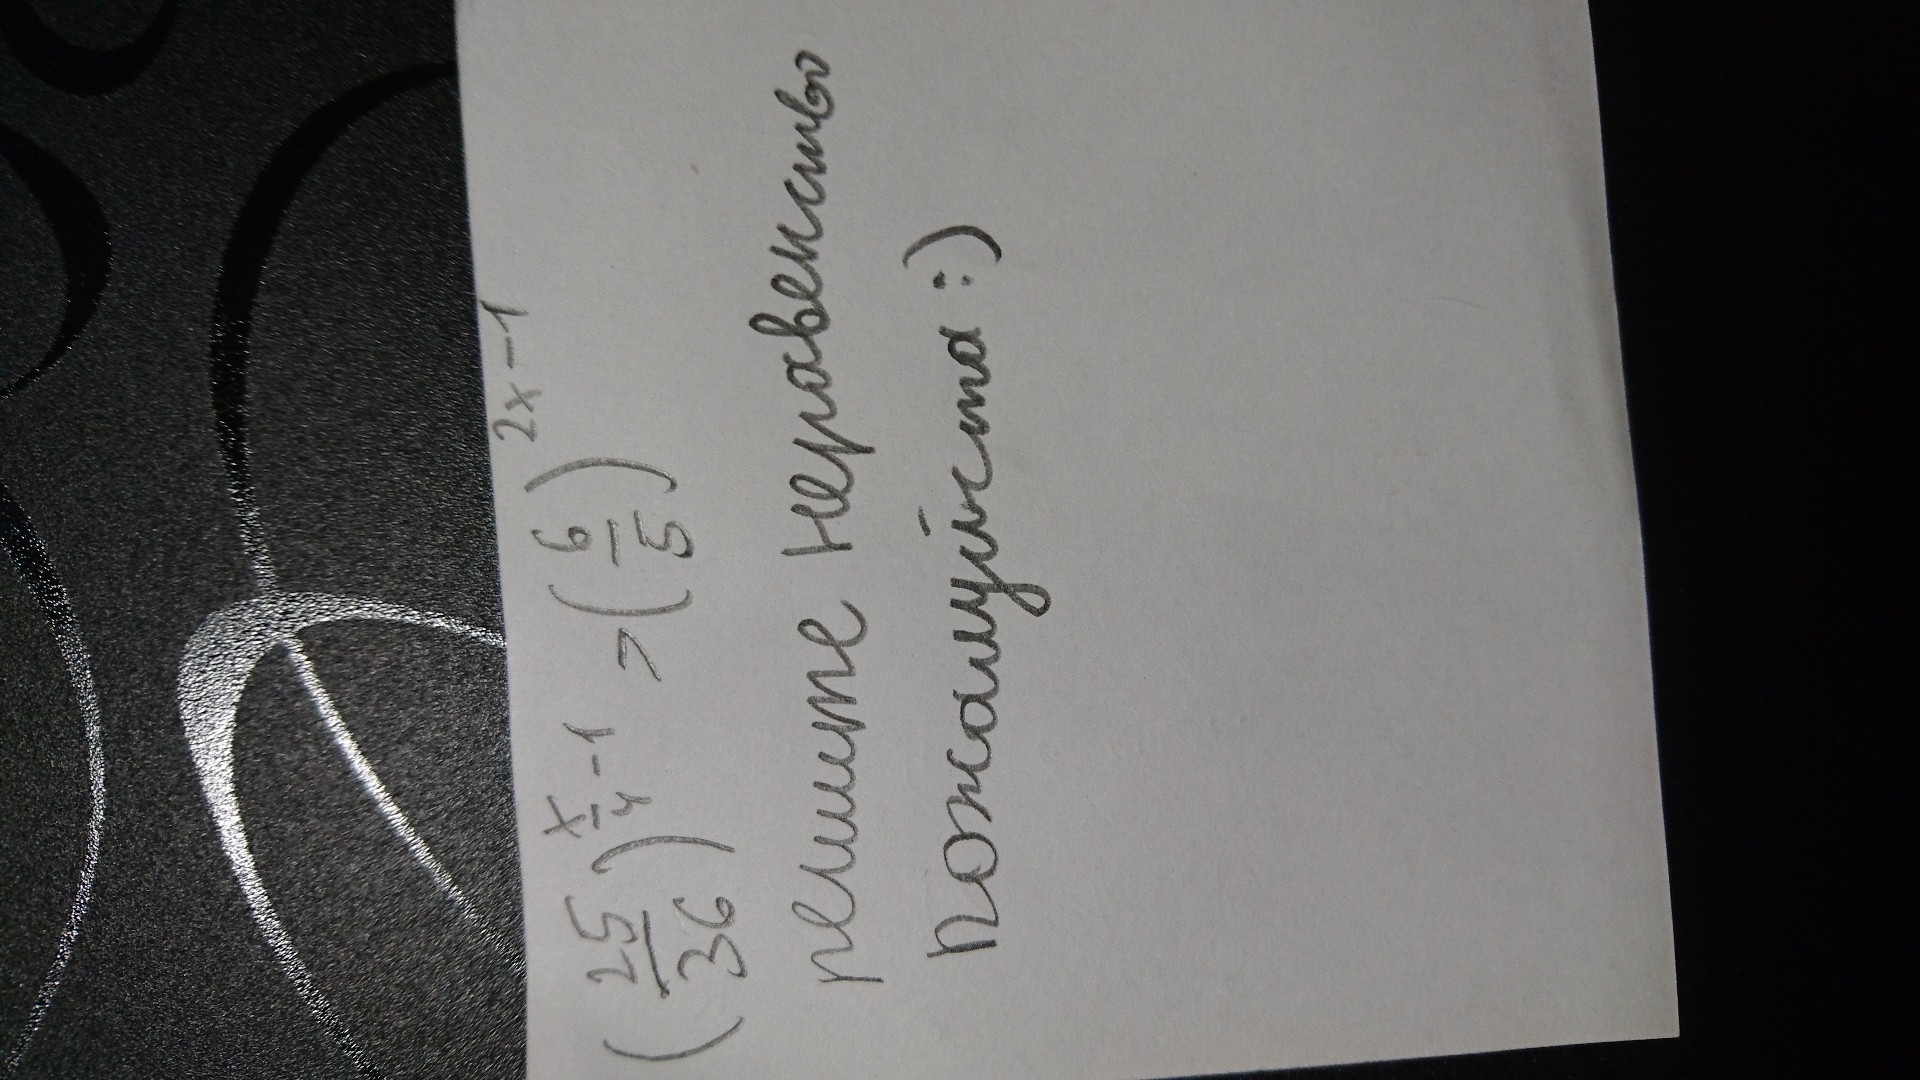 (25/36)^(x/4 - 1) > (6/5)^(2x-1)
решите неравенство
пожалуйста :)